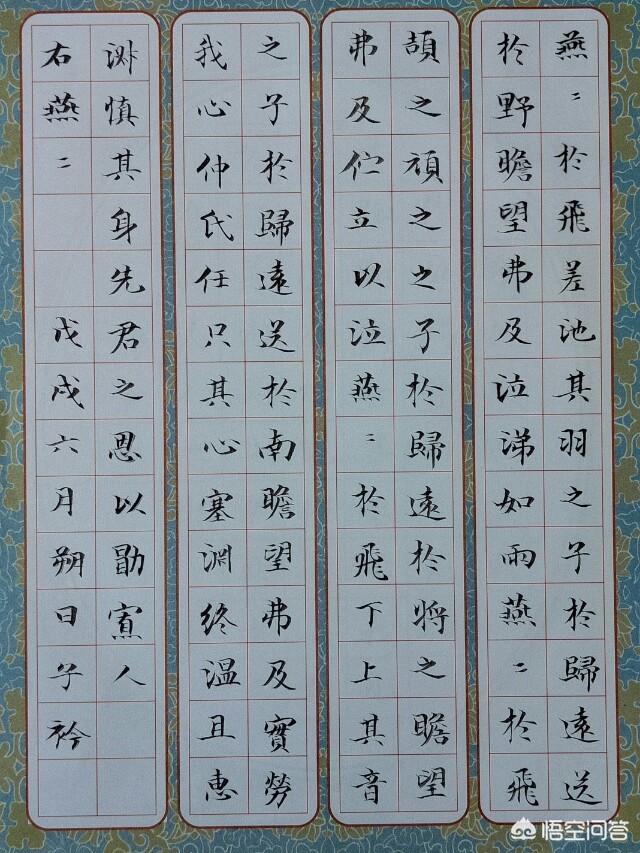 燕二於飛差池其羽之子於歸遠送
於野瞻望弗及泣涕如雨燕二於飛
頡之頏之之子於歸遠於將之瞻望
弗及佇立以泣燕二於飛下上其音
之子於歸遠送於南瞻望弗及實勞
我心仲氏任只其心塞淵終温且惠
淑慎其身先君之思以勖寡人
右燕二 戊戌六月朔日子衿
悟空问答